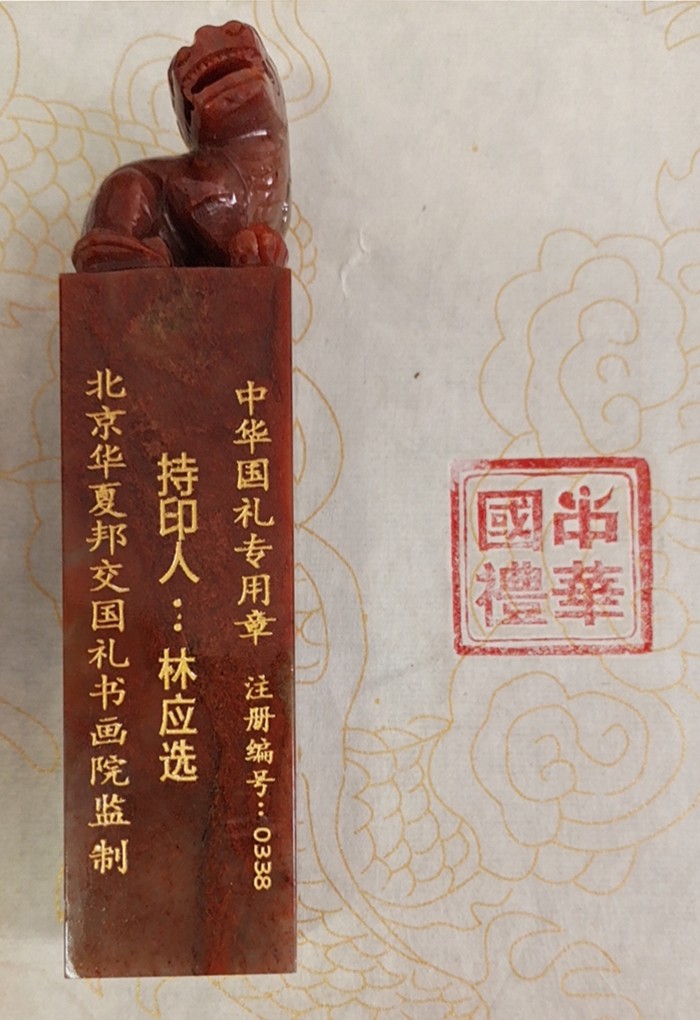 中华国礼专用章 注册编号：0338
持印人：林应选
北京华夏邦交国礼书画院监制
中華
國禮